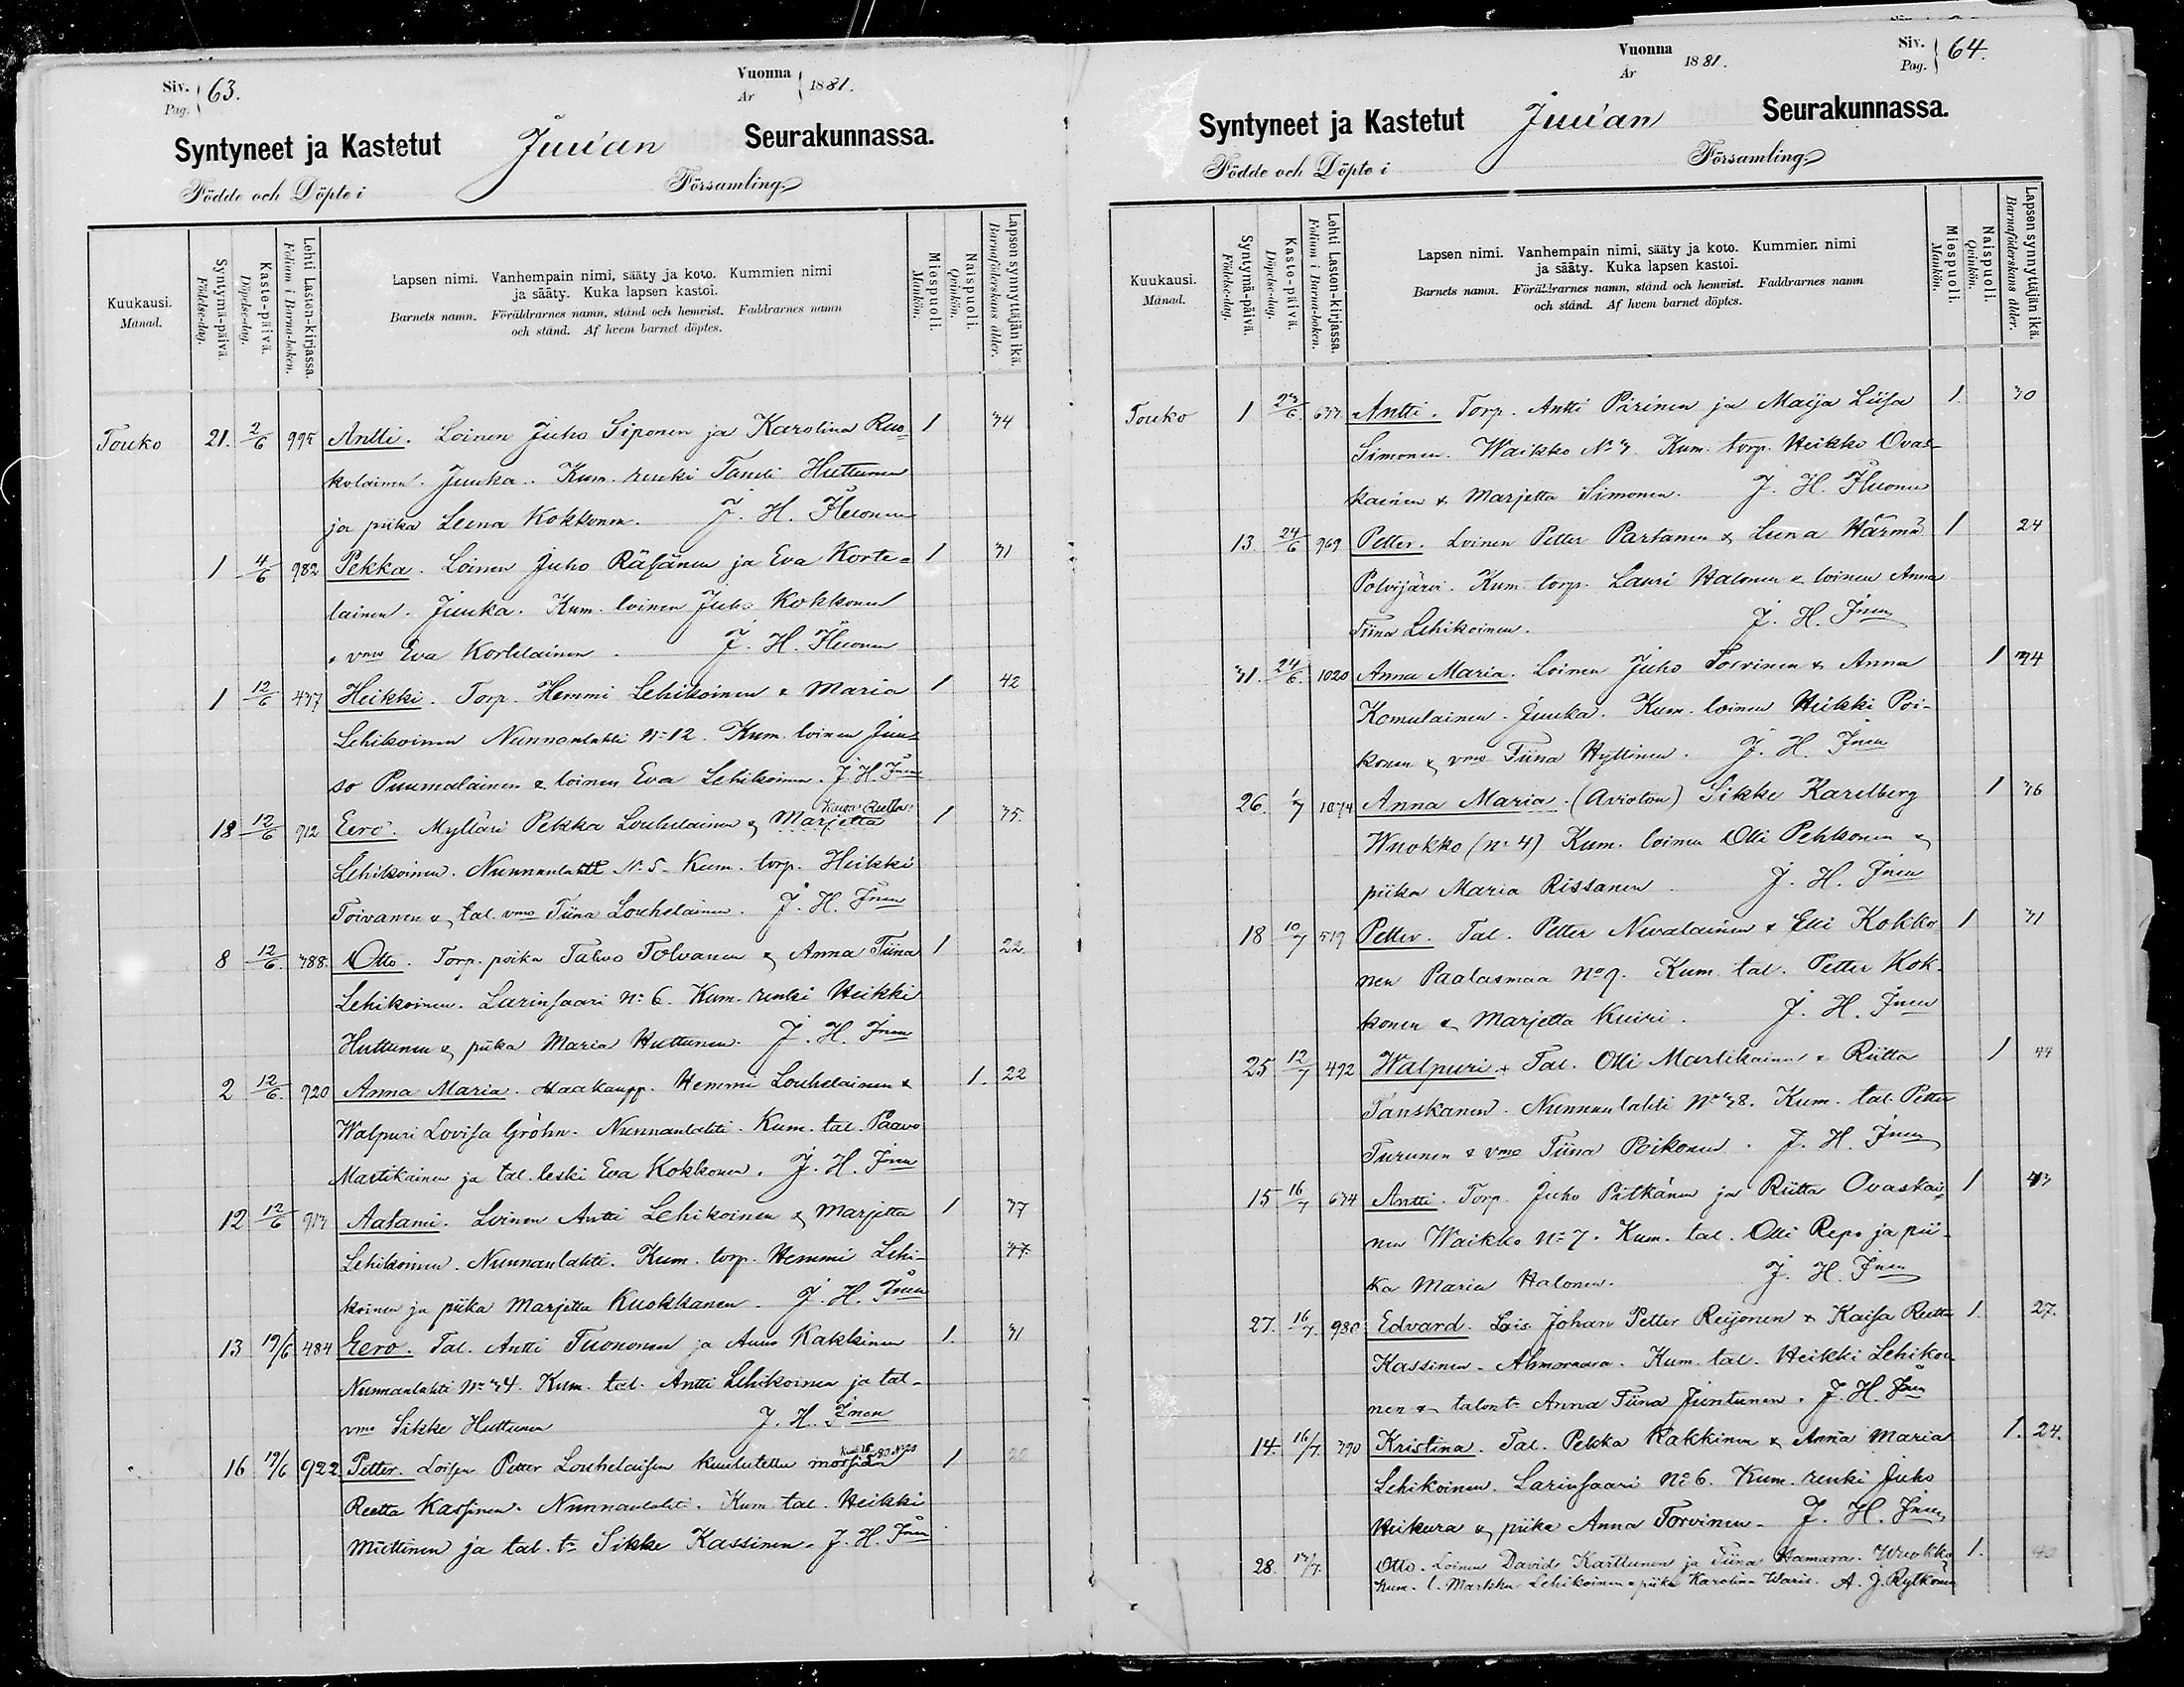 Siv. 63.
Pag.
Vuonna 1881.
Ar
Syntyneet ja Kastetut Juu'an Seurakunnassa.
Födde och Döpte i Församling.
Kuukausi.
Månad.
Syntymä-päivä.
Födelse-dag.
Kaste-päivä.
Döpelse-dag.
Lehti Lasten-kirjassa.
Folium i Barna-boken.
Lapsen nimi. Vanhempain nimi, sääty ja koto. Kummien nimi
ja sääty. Kuka lapsen kastoi.
Barnets namn. Föräldrarnes namn, stånd och hemvist. Faddrarnes namn
och stånd. Af hvem barnet döptes.
Miespuoli.
Mankön.
Naispuoli.
Qvinkön.
Lapsen synnyttäjän ikä.
Barnaföderskans ålder.
Touko 21. 2/6 995 Antti. Loinen Juho Siponen ja Karolina Ruo- 1 34
kolainen. Juuka. Kum. renki Taneli Huttunen
ja piika Leena Kokkonen. J. H.
1 4/6 982 Pekka. Loinen Juho Räsänen ja Eva Korte= 1 31
lainen. Juuka. Kum. loinen Juho Kokkonen
& vmo Eva Kortelainen. J. H.
1 12/6 437 Heikki. Torp. Hemmi Lehikoinen & Maria 1 42
Lehikoinen Nunnanlahti No 12. Kum. loinen Juu-
so Puumalainen & loinen Eva Lehikoinen. J. H.
18 12/6 912 Eero. Mylläri Pekka Louhelainen & Marjetta 1 35.
Lehikoinen. Nunnanlahti No 5. Kum. torp. Heikki
Toivanen & tal. vmo Tiina Louhelainen. J. H.
8 12/6. 388. Otto. Torp. poika Tahvo Tolvanen & Anna Tiina 1 22.
Lehikoinen. Larinsaari No 6. Kum. renki Heikki
Huttunen & piika Maria Huttunen. J. H.
2 12/6. 920 Anna Maria. Maakaupp. Hemmi Louhelainen & 1. 22
Walpuri Lovisa Gröhn. Nunnanlahti. Kum. tal. Paavo
Martikainen ja tal. leski Eva Kokkonen. J. H.
12 12/6 913 Aatami. Loinen Antti Lehikoinen & Marjetta 1 37
Lehikoinen. Nunnanlahti. Kum. torp. Hemmi Lehi- 37
koinen ja piika Marjetta Kuokkanen. J. H.
13 19/6 484 Eero. Tal. Antti Tuononen ja Anna Kakkinen 1. 31
Nunnanlahti No 34. Kum. tal. Antti Lehikoinen ja tal-
vmo Sikke Huttunen J. H.
16 19/6 922 Petter. Loisen Petter Louhelaisen kuulutettu morsian 1
Reetta Kassinen. Nunnanlahti. Kum. tal. Heikki
Miettinen ja tal. tr Sikke Kassinen. J. H.
Vuonna 1881.
Ar
Siv. 64.
Pag.
Syntyneet ja Kastetut Juu'an Seurakunnassa.
Födde och Döpte i Församling.
Kuukausi.
Månad.
Syntymä-päivä.
Födelse-dag.
Kaste-päivä.
Döpelse-dag.
Lehti Lasten-kirjassa.
Folium i Barna-boken.
Lapsen nimi. Vanhempain nimi, sääty ja koto. Kummien nimi
ja sääty. Kuka lapsen kastoi.
Barnets namn. Föräldrarnes namn, stånd och hemvist. Faddrarnes namn
och stånd. Af hvem barnet döptes.
Miespuoli.
Mankön.
Naispuoli.
Qvinkön.
Lapsen synnyttäjän ikä.
Barnaföderskans ålder.
Touko 1 23/6. 633. Antti. Torp. Antti Piirinen ja Maija Liisa 1. 30
Simonen. Waikko No 3 Kum. torp. Heikki Ovas-
kainen & Marjetta Simonen. J. H.
13 24/6 969 Petter. Loinen Petter Partanen & Leena Härmä 1 24
Polvijärvi. Kum. torp. Lauri Halonen & loinen Anna
Tiina Lehikoinen. J. H.
31. 24/6. 1020 Anna Maria. Loinen Juho Torvinen & Anna 1 34
Komulainen. Juuka. Kum. loinen Heikki Poi-
konen & vmo Tiina Hyttinen. J. H.
26. 1/7 1074 Anna Maria. (Avioton) Sikke Karelberg 1 36
Wuokko (No 4) Kum. loinen Olli Pehkonen &
piika Maria Rissanen. J. H.
18 10/7 519 Petter. Tal. Petter Nevalainen & Elli Kokko 1 31
nen Paalasmaa No 9. Kum. tal. Petter Kok-
konen & Marjetta Kuiri. J. H.
25 12/7 492 Walpuri. + Tal. Olli Martikainen & Riitta 1 44
Tanskanen. Nunnanlahti No 38. Kum. tal. Petter
Turunen & vmo Tiina Poikonen. J. H.
15 16/7 634 Antti. Torp. Juho Pitkänen ja Riitta Ovaskai- 1 43
nen Waikko No 7. Kum. tal. Olli Repo ja pii-
ka Maria Halonen. J. H.
27. 16/7. 980 Edvard. Lois. Johan Petter Reijonen & Kaisa Reetta 1. 27.
Kassinen. Ahmovaara. Kum. tal. Heikki Lehikoi
nen & talon tr Anna Tiina Juntunen. J. H.
14. 16/7. 390 Kristina. Tal. Pekka Kakkinen & Anna Maria 1. 24.
Lehikoinen. Larinsaari No 6. Kum. renki Juho
Heikura & piika Anna Torvinen. J. H.
28. 17/7. Otto. Loinen David Karttunen ja Tiina Hamara. Wuokko 1. 40
Kum. l. Markku Lehikoinen & piika Karolina Waris. A. J. Rytkönen